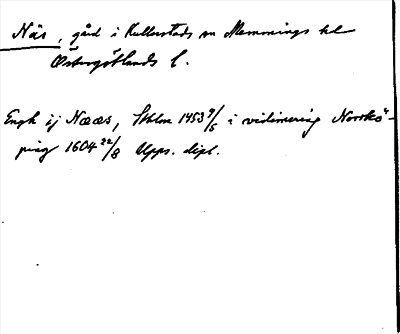 Näs, gård i Kullerstads sn Memmings hd
Östergötlands l.
Engh ij Nææs, Sthlm 1453 9/5 i vidimering Norrkö-
ping 1604 22/8 Upps. dipl.